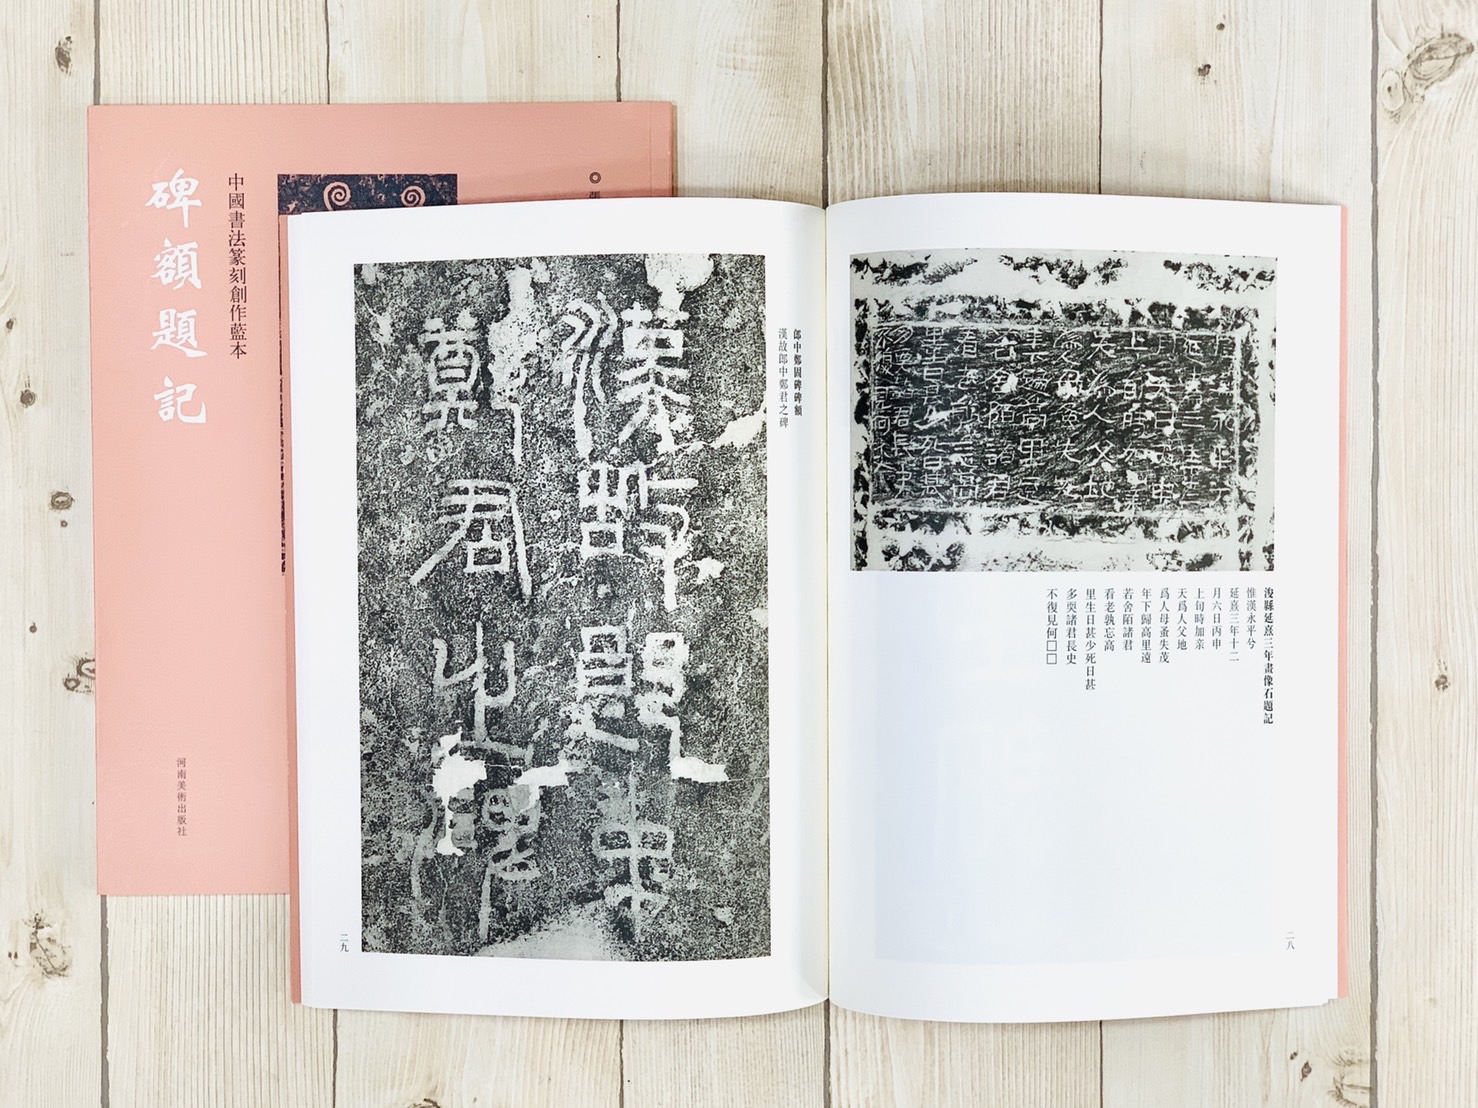 碑額題記
中國書法篆刻創作藍本
河南美術出版社
浚縣延熹三年畫像石題記
惟漢永平兮
延熹三年十二
月六日丙申
上旬時加亲
天爲人父地
爲人母蚤失茂
年下歸高里遠
若舍陌諸君
看老孰忘高
里生日甚少死日甚
多耎諸君長史
不復見何□□
二八
郎中鄭固碑碑額
漢故郎中鄭君之碑
漢故郎中
鄭君之碑
二九